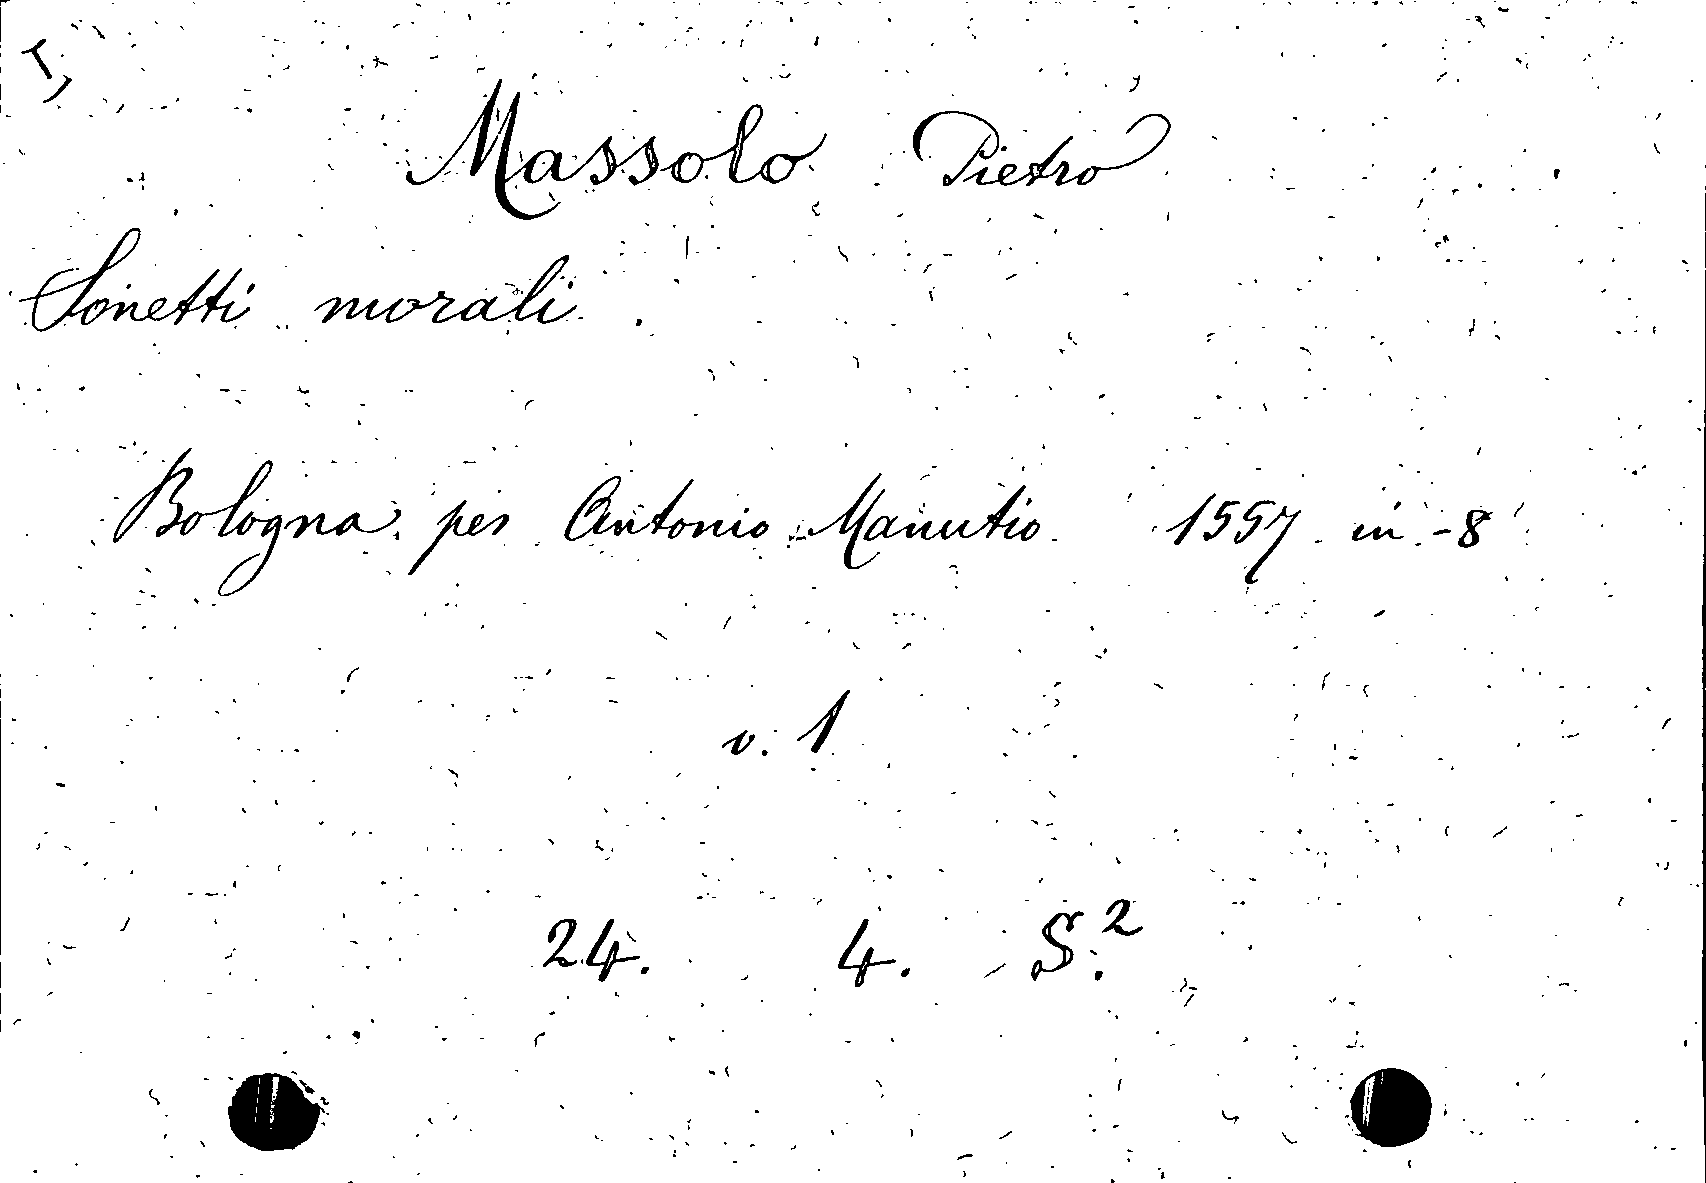 Massolo Pietro
Sonetti morali.
Bologna per Antonio Manutio 1557 in-8
v. 1
24. 4. S.²